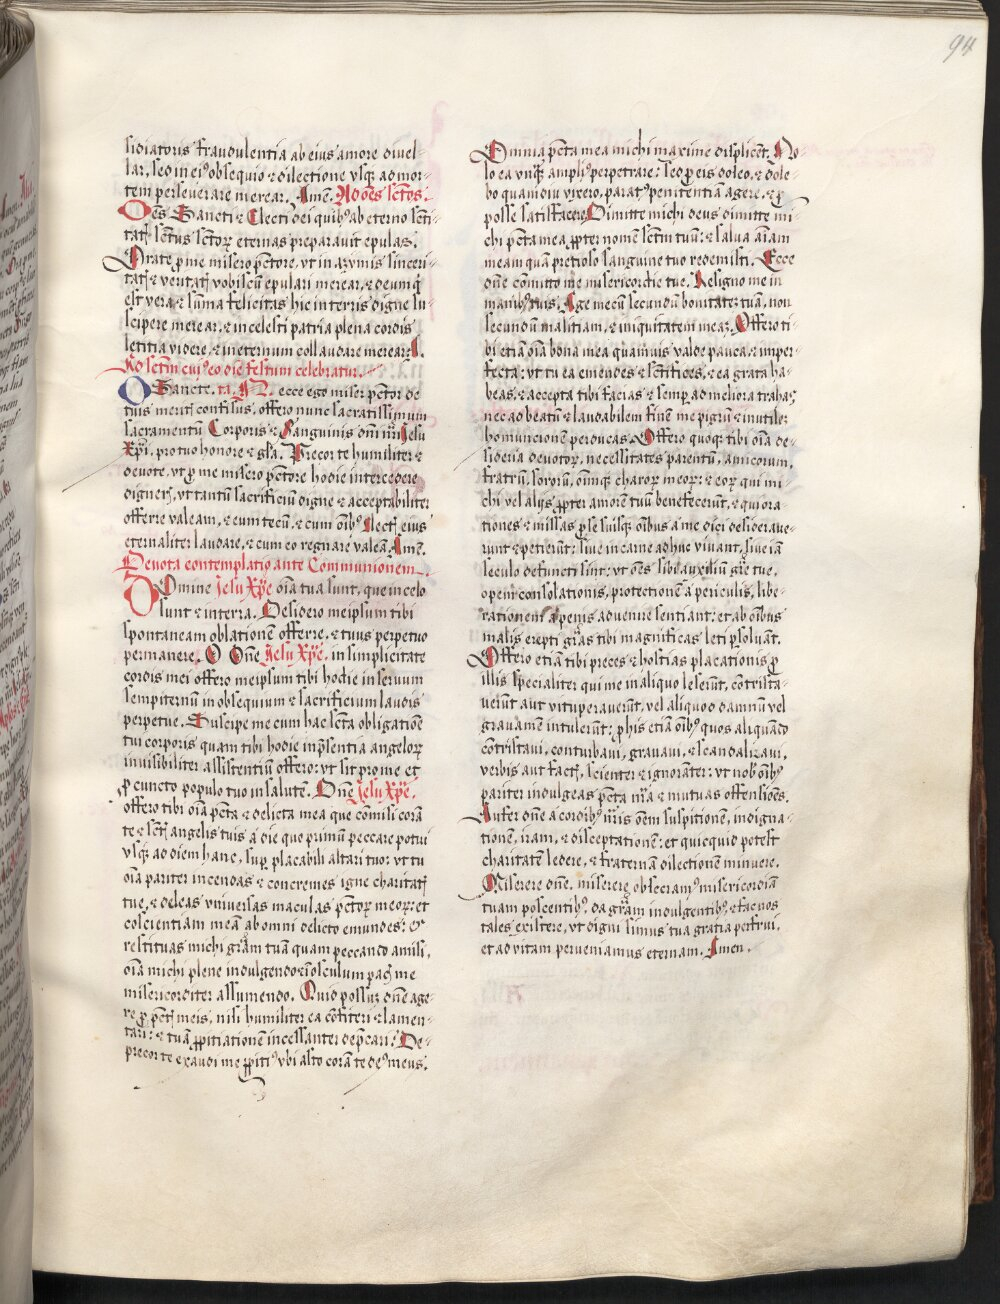 94
sidiatoris fraudulentia ab eius amore divel-
lar, sed in ei⁹ obsequio ⁊ dilectione vsqꝫ ad mor-
tem perseverare merear. Amē. Ad oēs sctōs.
Oēs Sancti ⁊ Electi dei quib⁹ ab eterno scti-
tatꝭ sctūs sctōꝝ eternas preparavit epulas.
Orate ꝓ me misero pctōre, vt in azymis sinceri-
tatꝭ ⁊ veritatꝭ vobiscū epulari merear, ⁊ deum q̄
est vera ⁊ sūma felicitas hic in terris digne su-
scipere merear, ⁊ in celesti patria plena cordis
letitia videre, ⁊ in eternum collaudare merear. A.
Ad sctm̄ cui⁹ eo die festum celebratur.
O Sancte. ta. N. ecce ego miser pctōr de
tuis meritꝭ confisus, offero nunc sacratissimum
sacramentū Corporis ⁊ Sanguinis dn̄i nr̄i Jesu
Xpi, pro tuo honore ⁊ gl̄a. Precor te humiliter ⁊
devote, vt ꝓ me misero pctōre hodie intercedere
digneris, vt tantū sacrificiū digne ⁊ acceptabiliter
offerre valeam, ⁊ eum tecū ⁊ cum oīb⁹ Electꝭ eius
eternaliter laudare, ⁊ cum eo regnare valeā. Amē.
Devota contemplatio ante Communionem.
Domine Jesu Xpe oīa tua sunt, que in celo
sunt ⁊ in terra. Desidero meipsum tibi
spontaneam oblationē offerre, ⁊ tuus perpetuo
permanere. O Dn̄e Jesu Xpe, in simplicitate
cordis mei offero meipsum tibi hodie in servum
sempiternū in obsequium ⁊ sacrificium laudis
perpetue. Suscipe me cum hac sctā obligatiōe
tui corporis quam tibi hodie in p̄sentia angeloꝝ
invisibiliter assistentiū offero: vt sit pro me et
ꝓ cuncto populo tuo in salutē. Dn̄e Jesu Xpe.
offero tibi oīa pctā ⁊ delicta mea que cōmisi corā
te ⁊ sctꝭ angelis tuis a die quo primū peccare potui
vsqꝫ ad diem hanc, suꝑ placabili altari tuo: vt tu
oīa pariter incendas ⁊ concremes igne charitatꝭ
tue, ⁊ deleas vniversas maculas pctōꝝ meoꝝ: et
cōscientiam meā ab omni delicto emundes: ⁊
restituas michi grām tuā quam peccando amisi,
oīa michi plene indulgendo ⁊ ī osculum pacꝭ me
misericorditer assumendo. Quid possuꝫ dn̄e age-
re ꝓ pctꝭ meis, nisi humiliter ea cōfiteri ⁊ lamen-
tari: ⁊ tuā ꝓpitiationē incessanter dep̄cari? De-
precor te exaudi me ꝓpiti⁹ vbi asto corā te de⁹ meus.
Omnia pctā mea michi maxime displicēt. No
lo ea vnqꝫ ampli⁹ perpetrare: sed ꝓ eis doleo, ⁊ dole-
bo quamdiu vixero, parat⁹ penitentiā agere, ⁊ ꝓ
posse satisfacere. Dimitte michi deus dimitte mi-
chi pctā mea ꝓpter nomē sctm̄ tuū: ⁊ salva aīam
meam quā pretioso sanguine tuo redemisti. Ecce
dn̄e cōmitto me misericordie tue, Resigno me in
manib⁹ tuis. Age mecū secundū bonitateꝫ tuā, non
secundū malitiam, ⁊ iniquitatem meaꝫ. Offero ti-
bi etiā oīa bona mea quamvis valde pauca ⁊ imper-
fecta: vt tu ea emendes ⁊ sctīfices, ⁊ ea grata ha-
beas, ⁊ accepta tibi facias ⁊ semꝑ ad meliora trahas,
nec ad beatū ⁊ laudabilem finē me pigrū ⁊ inutileꝫ
homuncionē perducas. Offero quoqꝫ tibi oīa de-
sideria devotoꝝ, necessitates parentū, amicorum,
fratrū, sororū, oīmqꝫ charoꝝ meoꝝ: ⁊ eoꝝ qui mi-
chi vel alijs ꝓpter amorē tuū benefecerūt, ⁊ qui ora-
tiones ⁊ missas ꝓ se suisqꝫ oībus a me dici desiderave-
runt ⁊ petierūt: sive in carne adhuc vivant, sive iā
seculo defuncti sint: vt oēs sibi auxiliū grē tue,
opem consolationis, protectionē a periculis, libe-
rationem a penis advenire sentiant: et ab oībus
malis erepti grās tibi magnificas leti ꝓsolvāt.
Offero etiā tibi preces ⁊ hostias placationis ꝓ
illis specialiter qui me in aliquo leserūt, cōtrista-
verūt aut vituperaverūt, vel aliquod damnū vel
gravamē intulerūt: ꝓ his etiā oīb⁹ quos aliquādo
cōtristavi, conturbavi, gravavi, ⁊ scandalizavi,
verbis aut factꝭ, scienter ⁊ ignorāter: vt nob̄ oīb⁹
pariter indulgeas pctā nr̄a ⁊ mutuas offensiōes.
Aufer dn̄e a cordib⁹ nr̄is oēm suspitionē, indigna-
tionē, iram, ⁊ disceptationē: et quicquid potest
charitatē ledere, ⁊ fraternā dilectionē minuere.
Miserere dn̄e. miserere obsecram⁹ misericordiā
tuam poscentib⁹, da grām indulgentib⁹, ⁊ fac nos
tales existere, vt digni simus tua gratia perfrui,
et ad vitam perveniamus eternam. Amen.